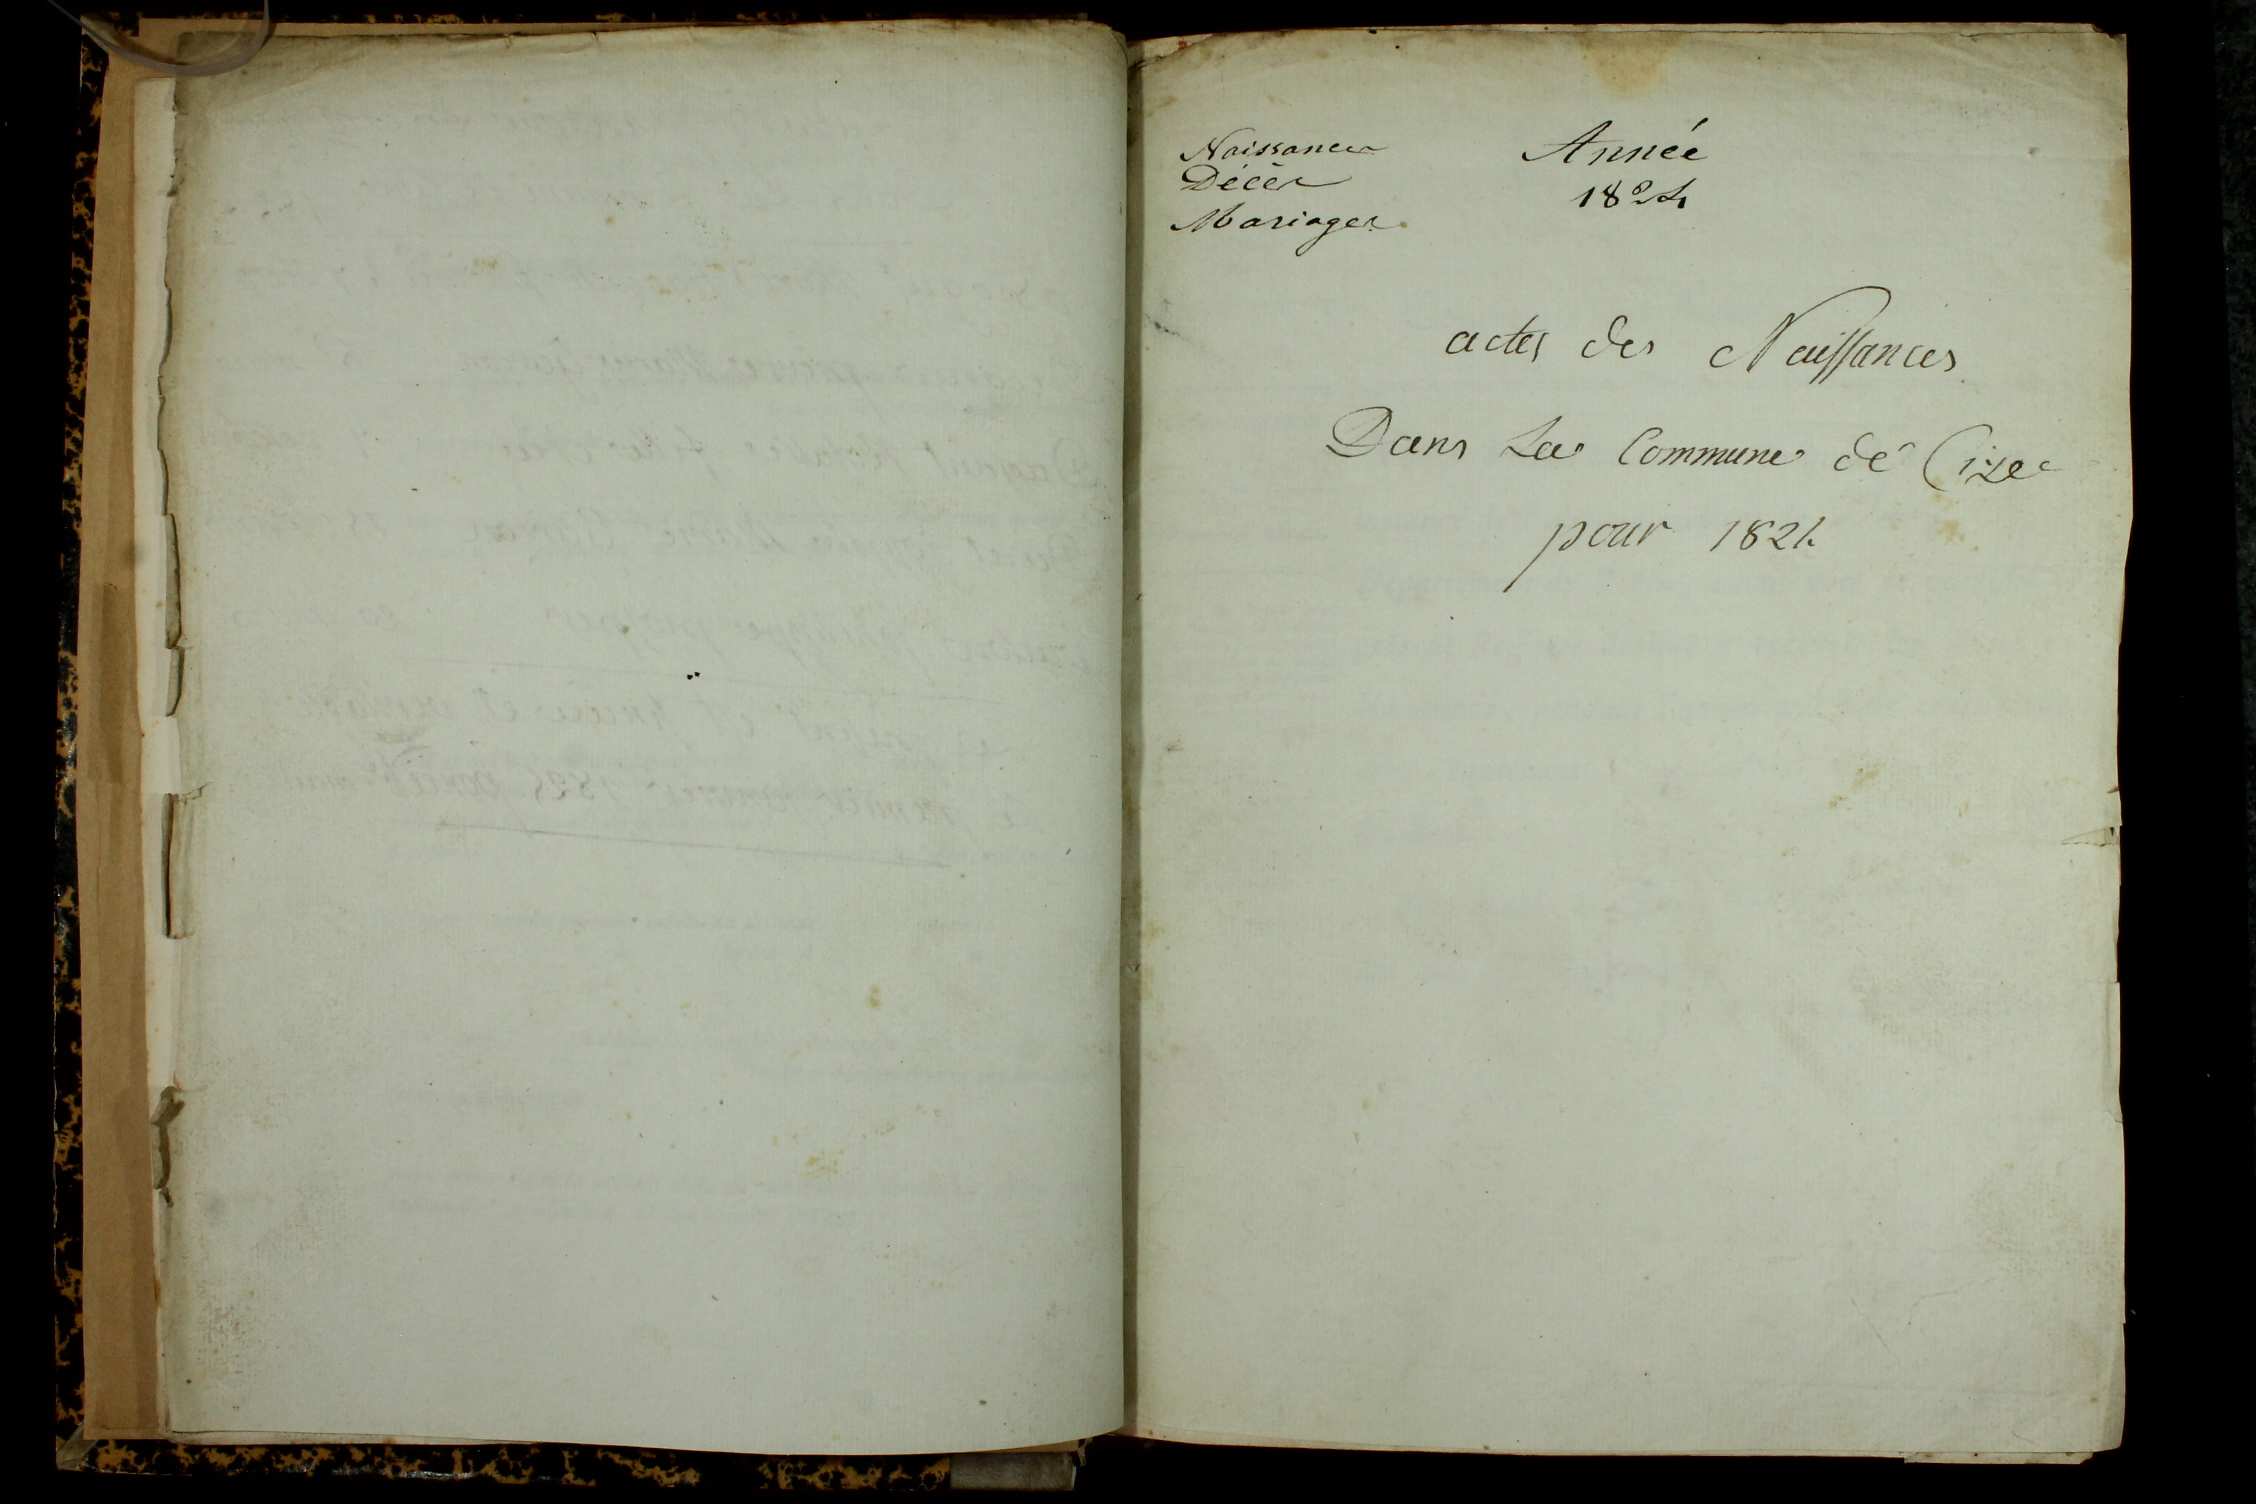 Naissances
Décès
Mariages
Année
1824
actes des Naissances
Dans La Commune de Cize
pour 1824